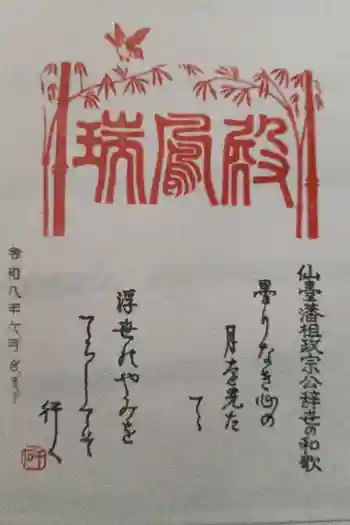 瑞鳳殿
仙臺藩祖政宗公辞世の和歌
曇りなき心の
月を先た
てゝ
浮世のやみを
てらしてそ
行く
令和八年六月